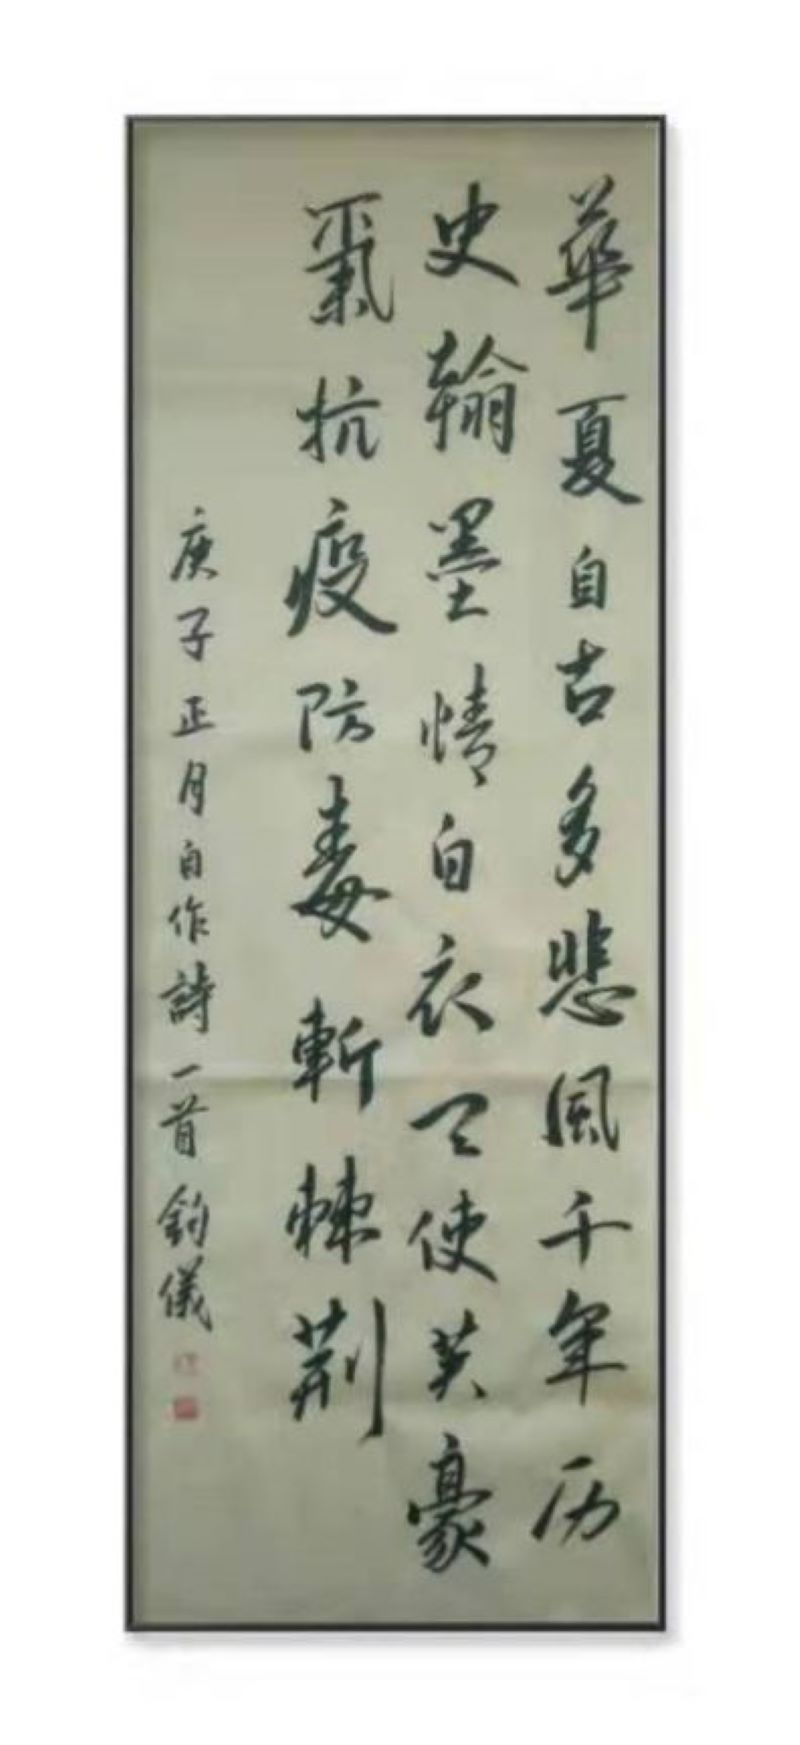 華夏自古多悲風千年历
史翰墨情白衣天使英豪
氣抗疫防毒斬棘荆
庚子正月自作詩一首鈞儀